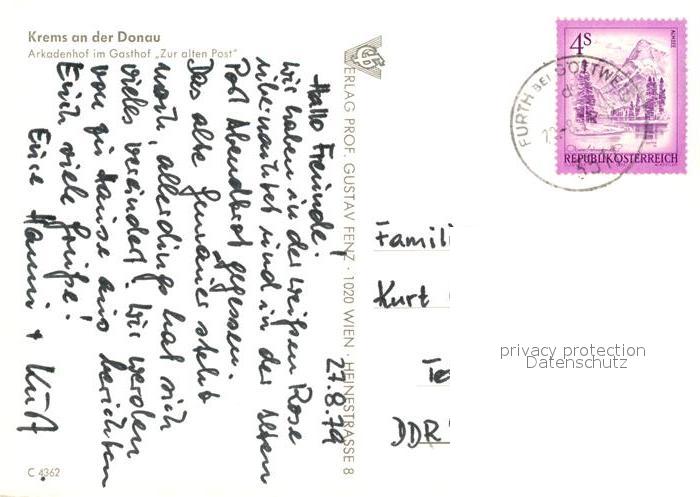 Krems an der Donau
Arkadenhof im Gasthof „Zur alten Post"
27.8.79
Hallo Freunde!
Wir haben in der weißen Rose
übernachtet und in der Alten
Post Abendbrot gegessen.
Das alte Gemäuer steht
noch, allerdings hat sich
vieles verändert. Wir werden
von zu Hause aus berichten
Euch viele Grüße!
Eure Hanni + Kurt
C 4362
VERLAG PROF. GUSTAV FENZ · 1020 WIEN · HEINESTRASSE 8
4S
ALMSEE
REPUBLIK ÖSTERREICH
FURTH BEI GÖTTWEIG
Famili
Kurt
DDR
privacy protection
Datenschutz